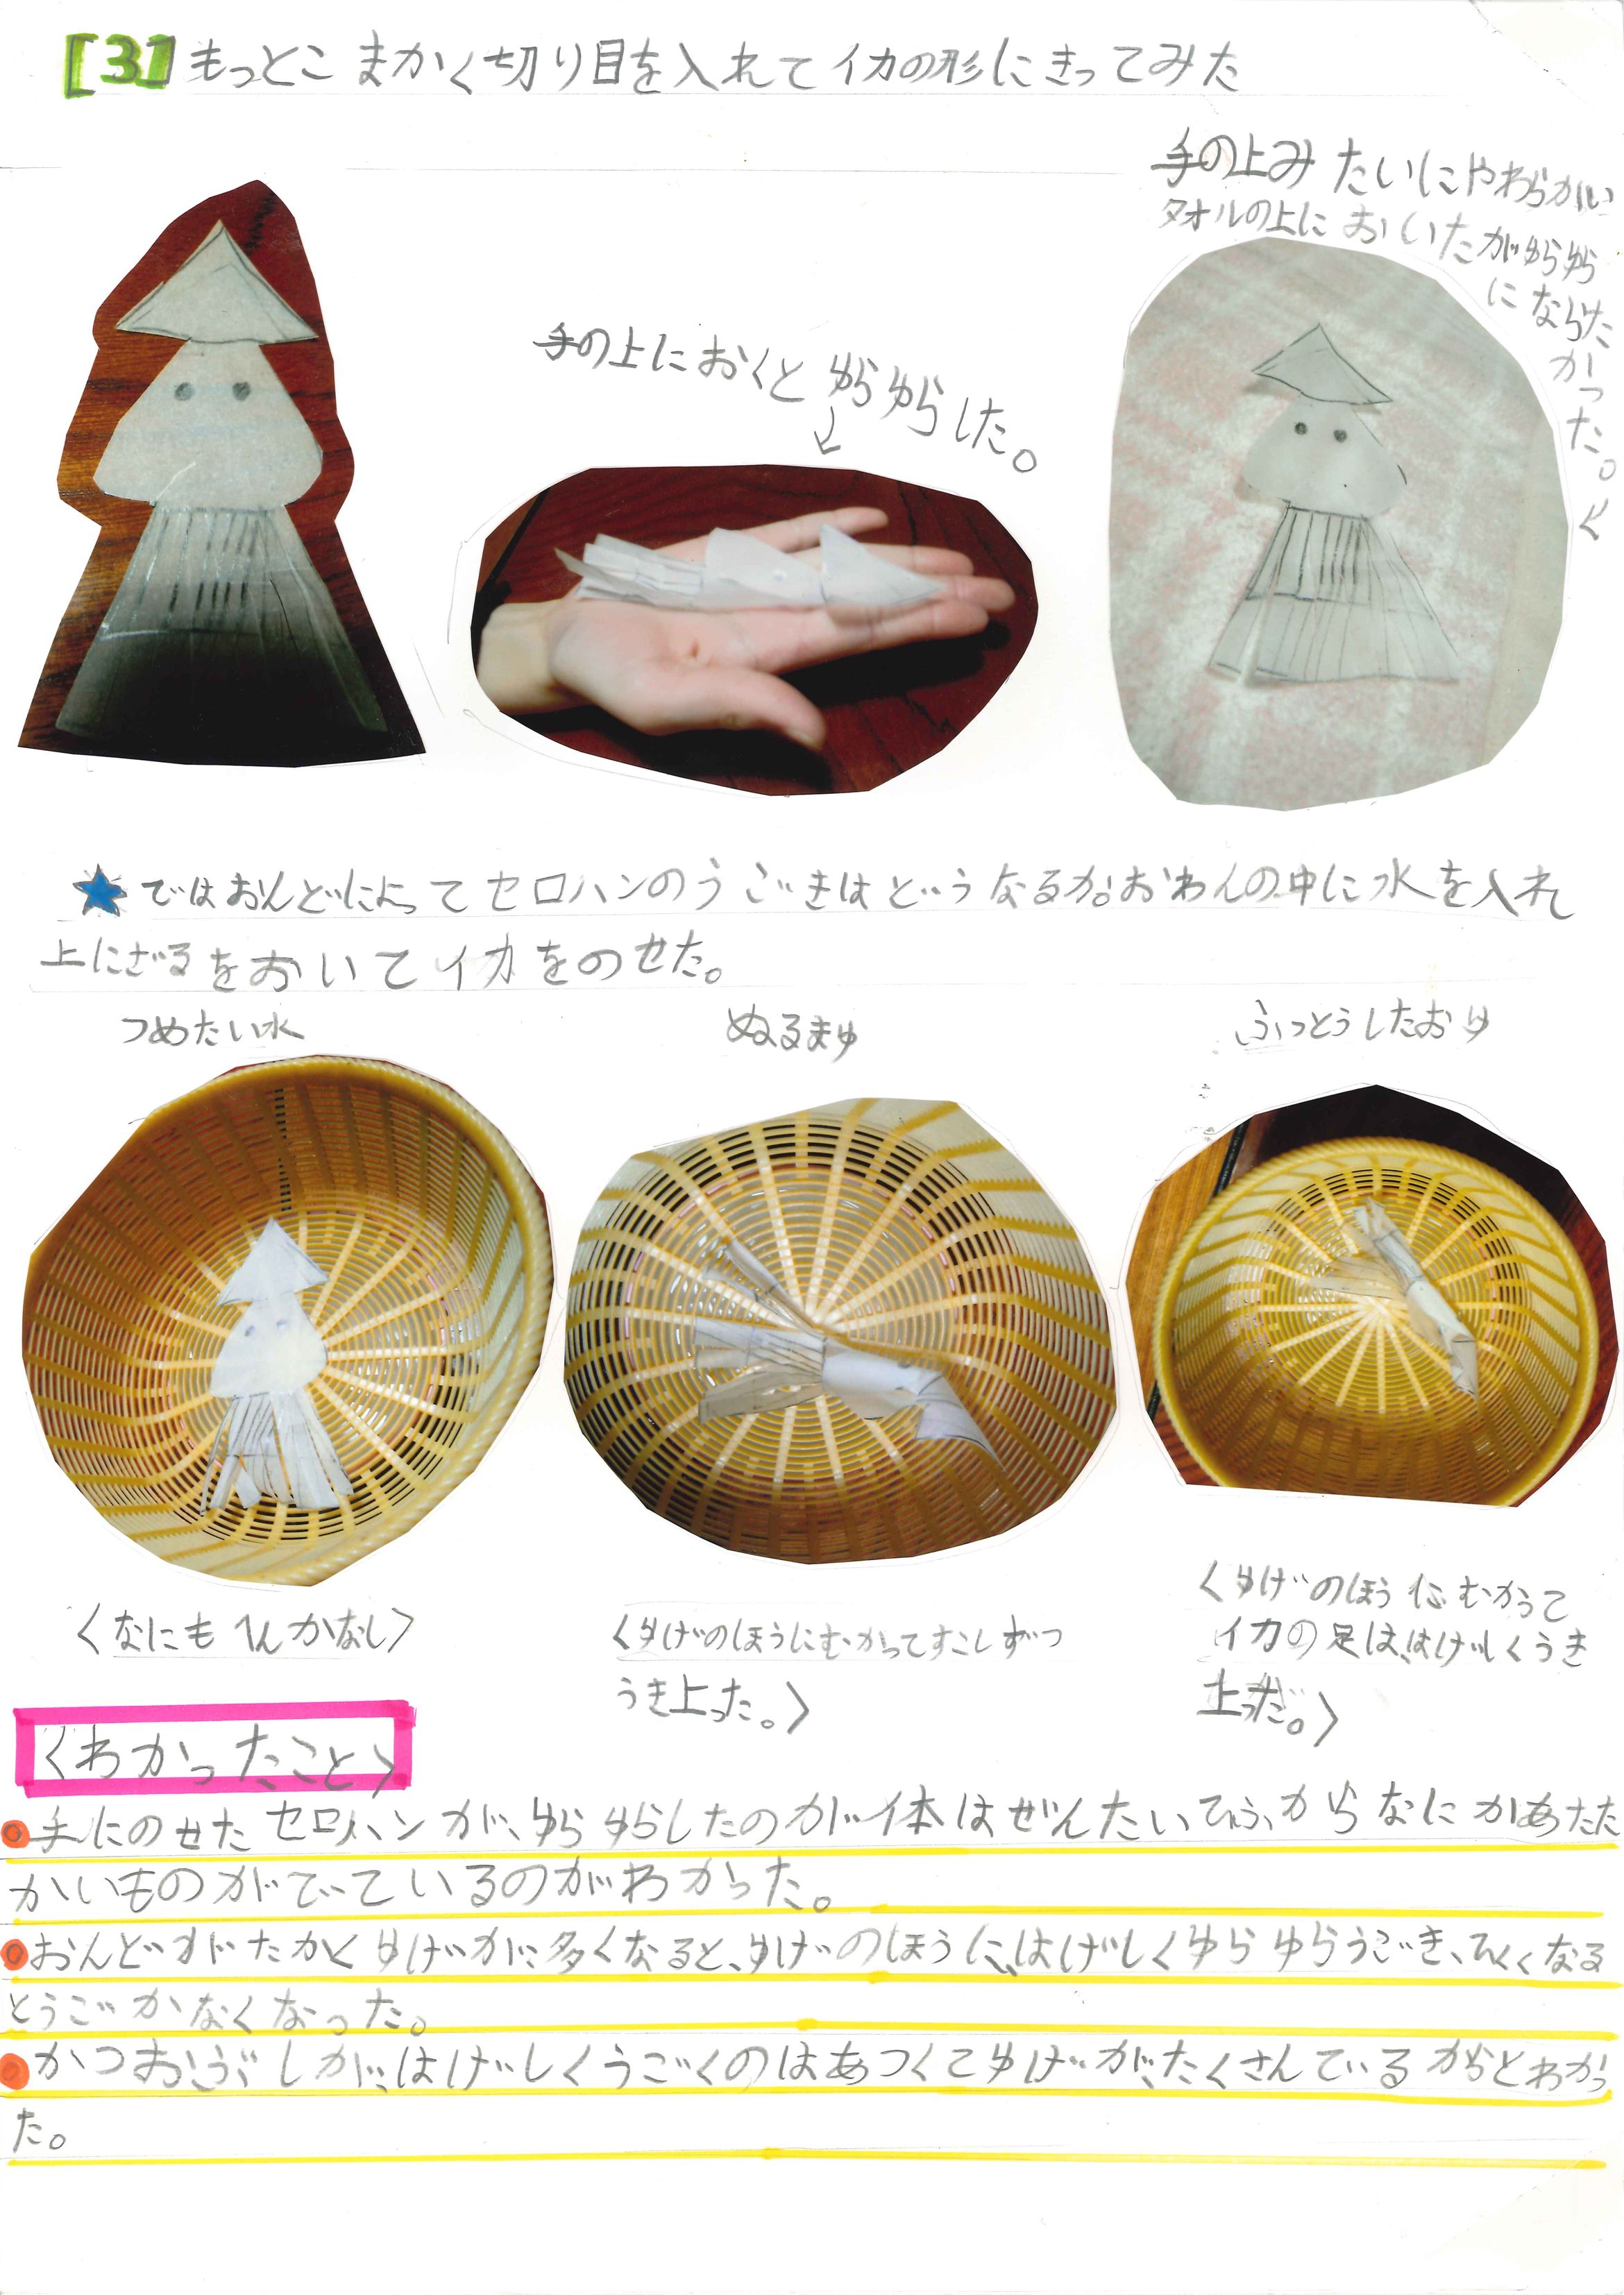 [3]もっとこまかく切り目を入れてイカの形にきってみた
手の上みたいにやわらかい
タオルの上においたがゆらゆら
にならなかった。
手の上におくとゆらゆらした。
★ではおんどによってセロハンのうごきはどうなるか。おわんの中に水を入れ
上にざるをおいてイカをのせた。
つめたい水
ぬるまゆ
ふっとうしたおゆ
〈なにもへんかなし〉
〈ゆげのほうにむかってすこしずつ
うき上った。〉
〈ゆげのほうにむかって
イカの足は、はげしくうき
上った。〉
〈わかったこと〉
手にのせたセロハンが、ゆらゆらしたのが体はぜんたいひふからなにかあたた
かいものがでているのがわかった。
おんどがたかくゆげが多くなると、ゆげのほうに、はげしくゆらゆらうごき、ひくくなる
とうごかなくなった。
かつおぶしが、はげしくうごくのはあつくてゆげが、たくさんでているからとわかっ
た。